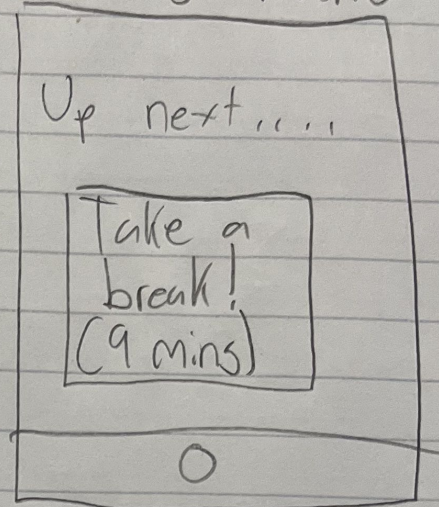 Up next....
Take a
break!
(9 mins)